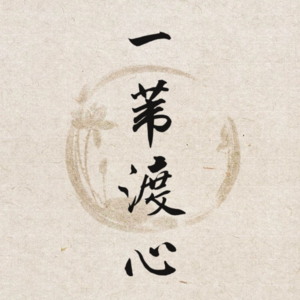 一苇渡心